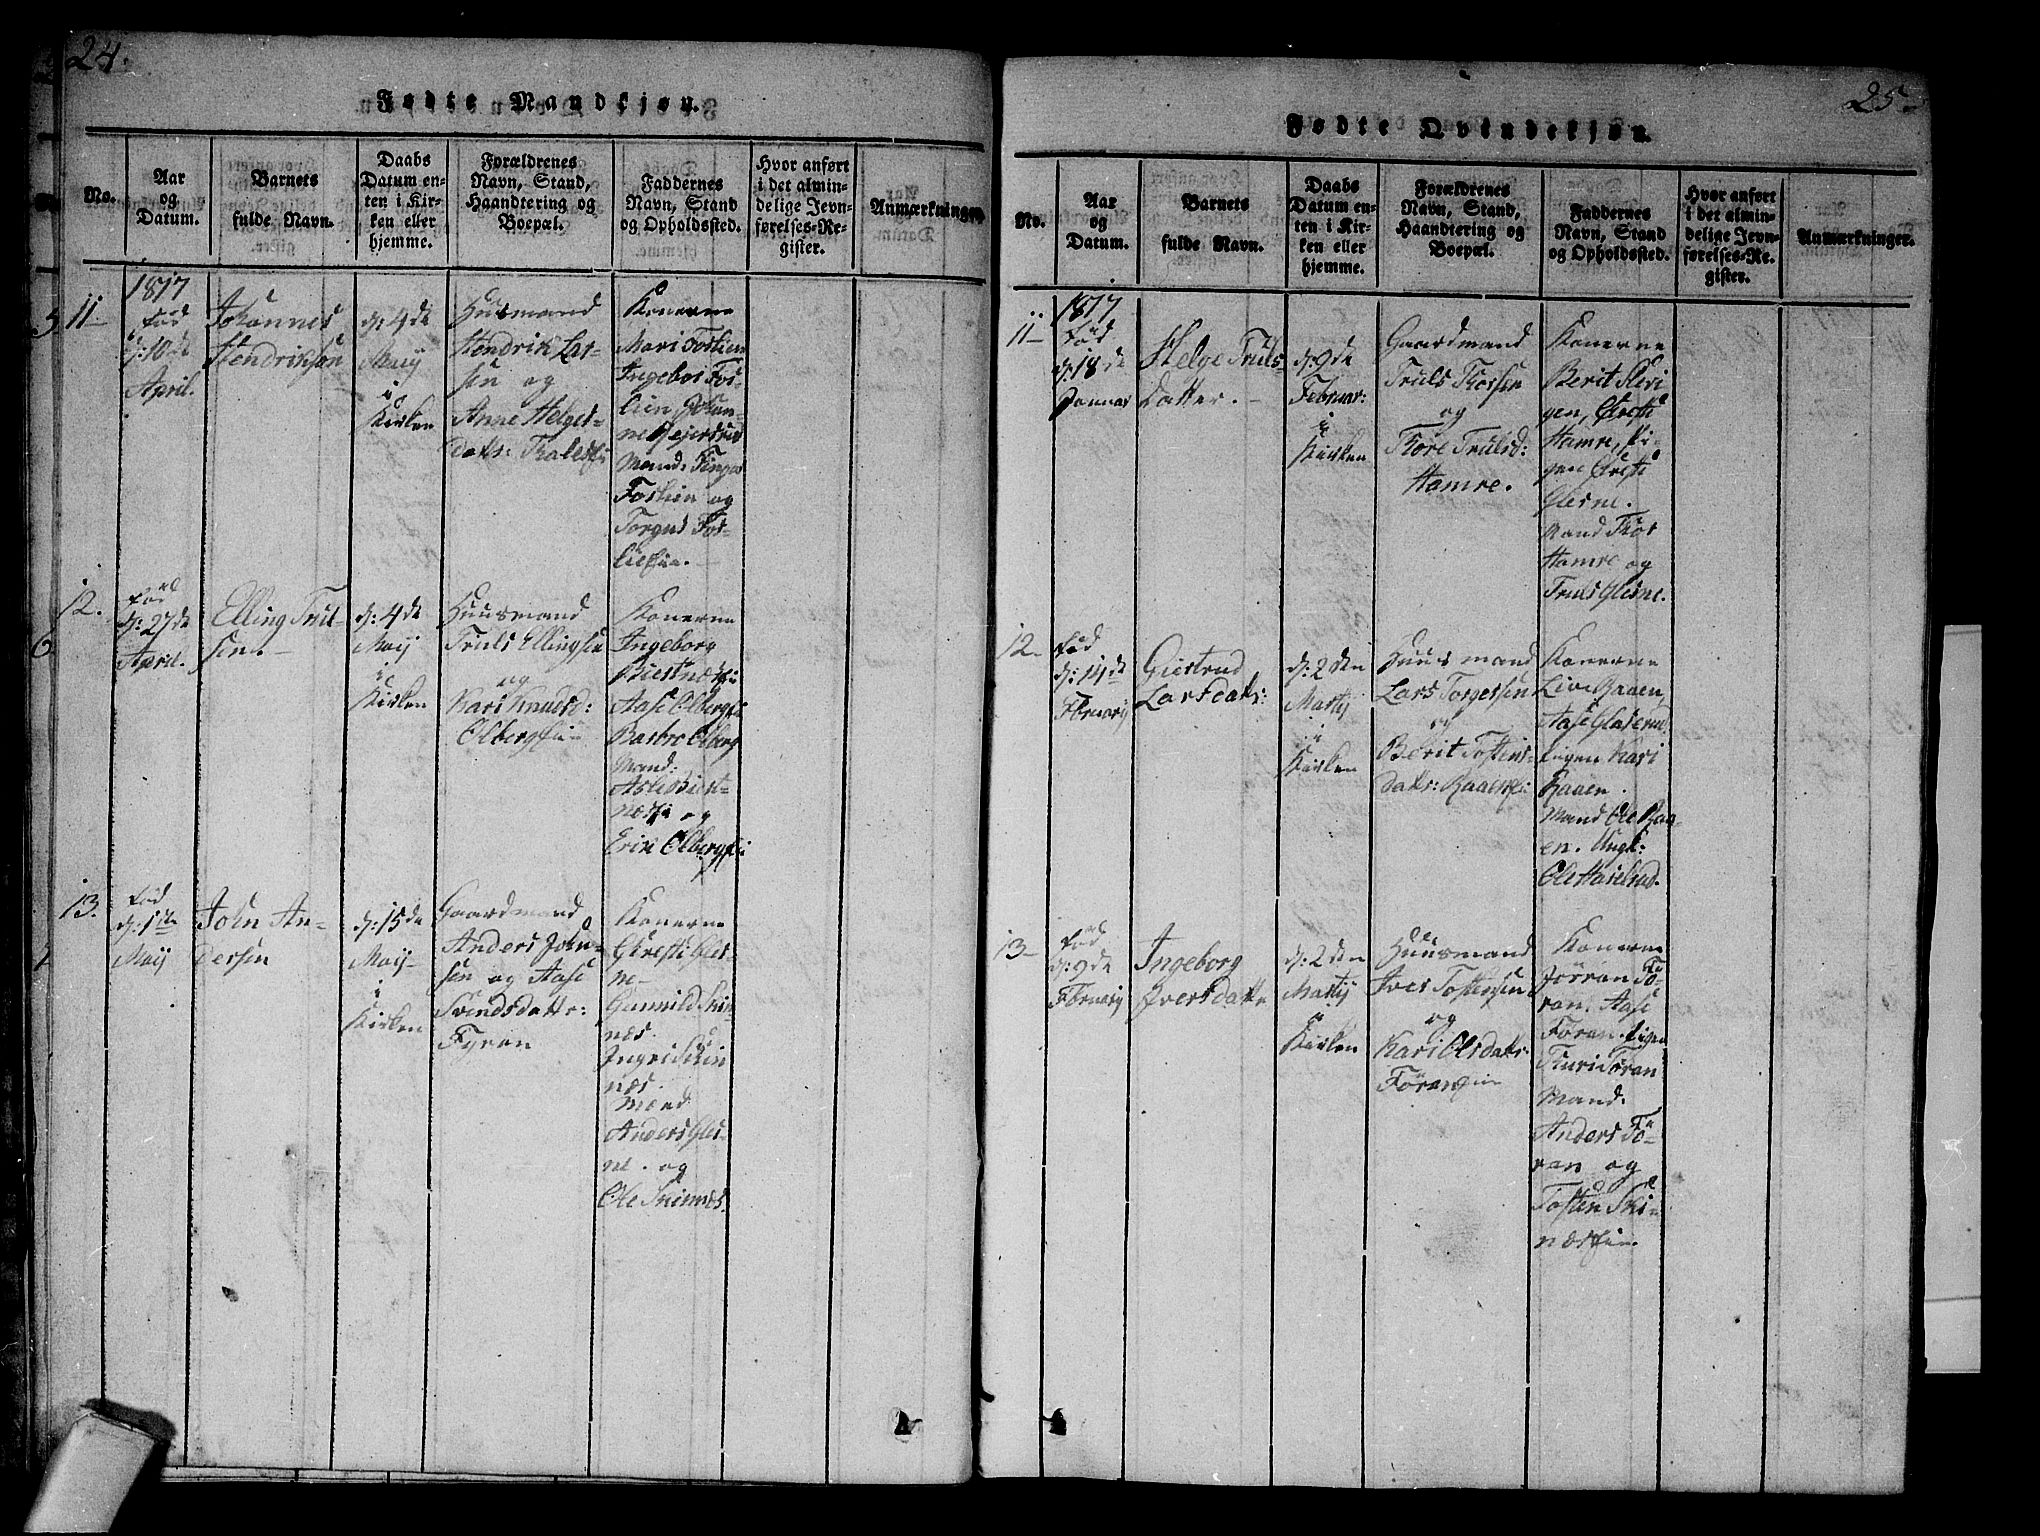 24.
Fødte Mandkjøn.
No.
Aar
og
Datum.
Barnets
fulde Navn.
Daabs
Datum en-
ten i Kir-
ken eller
hjemme.
Forældrenes
Navn, Stand,
Haandtering og
Boepæl.
Faddernes
Navn, Stand
og Opholdssted.
Hvor anført
i det almin-
delige Jevn-
førelses-Re-
gister.
Anmærkninger.
11.
1817
fød
d: 10de
April.
Johannes
Hendriksen
d: 4de
Maij
i
Kirken
Huusmand
Hendrik Lar-
sen og
Anne Helges-
Datr:
Konerne
Mari
Ingebor Fos-
lien, Johan-
ne
Mand:
Foslien og
Torgus Fos-
12.
fød
d: 27de
April.
Elling Trul-
sen.
d: 4de
Maij
i
Kirken
Huusmand
Truls Ellingsen
og
Kari Knudsd:
Olbergeie
Konerne
Ingeborg
Aase Olberg
Barbro Olberg
Mand:
og
Erik Olberg
13.
fød
d: 1ste
Maij
John An-
dersen
d: 15de
Maij
i
Kirken
Gaardmand
Anders John-
sen og Aase
Svendsdattr:
Fyran
Konerne
Christi Gles-
ne
Gunnild Skin-
næs.
Ingri Skin
næs.
Mænd
Anders Gles-
ne. og
Ole Skinnæs.
25.
Fødte Qvindekjøn.
No.
Aar
og
Datum.
Barnets
fulde Navn.
Daabs
Datum en-
ten i Kir-
ken eller
hjemme.
Forældrenes
Navn, Stand,
Haandtering og
Boepæl.
Faddernes
Navn, Stand
og Opholdssted.
Hvor anført
i det almin-
delige Jevn-
førelses-Re-
gister.
Anmærkninger.
11
1817
fød
d: 18de
Januar
Helge Truls-
Datter.
d: 9de
Februar:
i
Kirken
Gaardmand
Truls Thorsen
og
Thore Trulsd:
Hamre.
Konerne
Berit Skri
gen, Christi
Hamre, Pi-
gen Christi
Glesne.
Mand Thor
Hamre og
Truls Glesne.
12.
fød
d: 14de
Februarij
Giertrud
Larsdatr:
d: 2den
Martij
i
Kirken
Huusmand
Lars Torgersen
og
Berit Tostens-
Datr: Raaen
Konerne
Live Raaen,
Aase Glaserud
Pigen Kari
Raaen.
Mand Ole Raa-
en. Ungk:
Ole Haselrud.
13
fød
d: 9de
Februarij
Ingeborg
Iversdattr
d: 2den
Martij
i
Kirken
Huusmand
Iver Tostensen
og
Kari Olsdatr:
Föraneie
Konerne
Jörran Fö-
ran. Aase
Föran. Pigen
Thuri Föran
Mand:
Anders Fö-
ran og
Tosten Ski-
næseie.